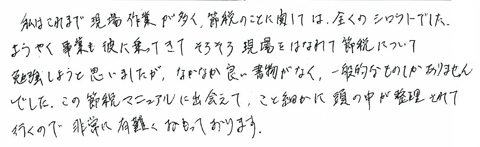 私はこれまで現場作業が多く、節税のことに関しては、全くのシロウトでした。
ようやく事業も波に乗ってきてそろそろ現場をはなれて節税について
勉強しようと思いましたが、なかなか良い書物がなく、一般的なものしかありません
でした。この節税マニュアルに出会えて、こと細かに頭の中が整理されて
行くので非常に有難くおもっております。